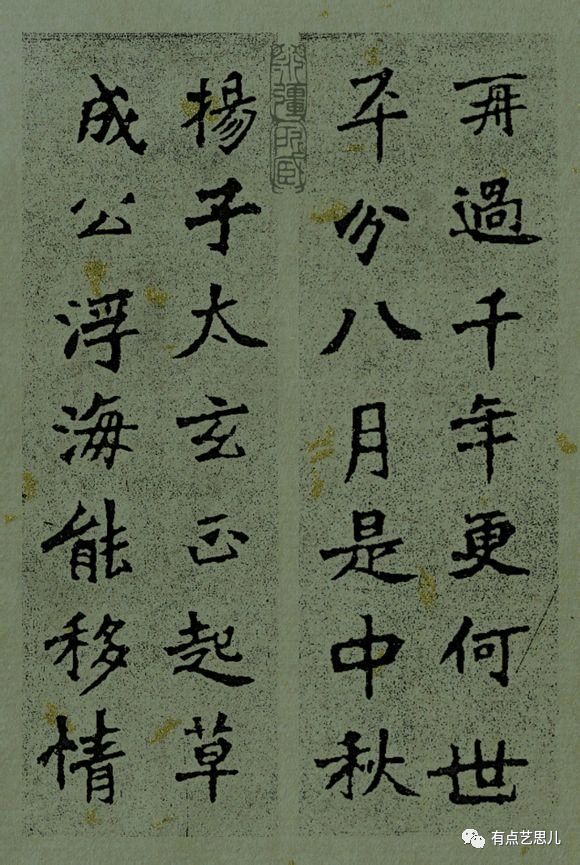 再過千年更何世
平分八月是中秋
揚子太玄正起草
成公浮海能移情
有点艺思儿